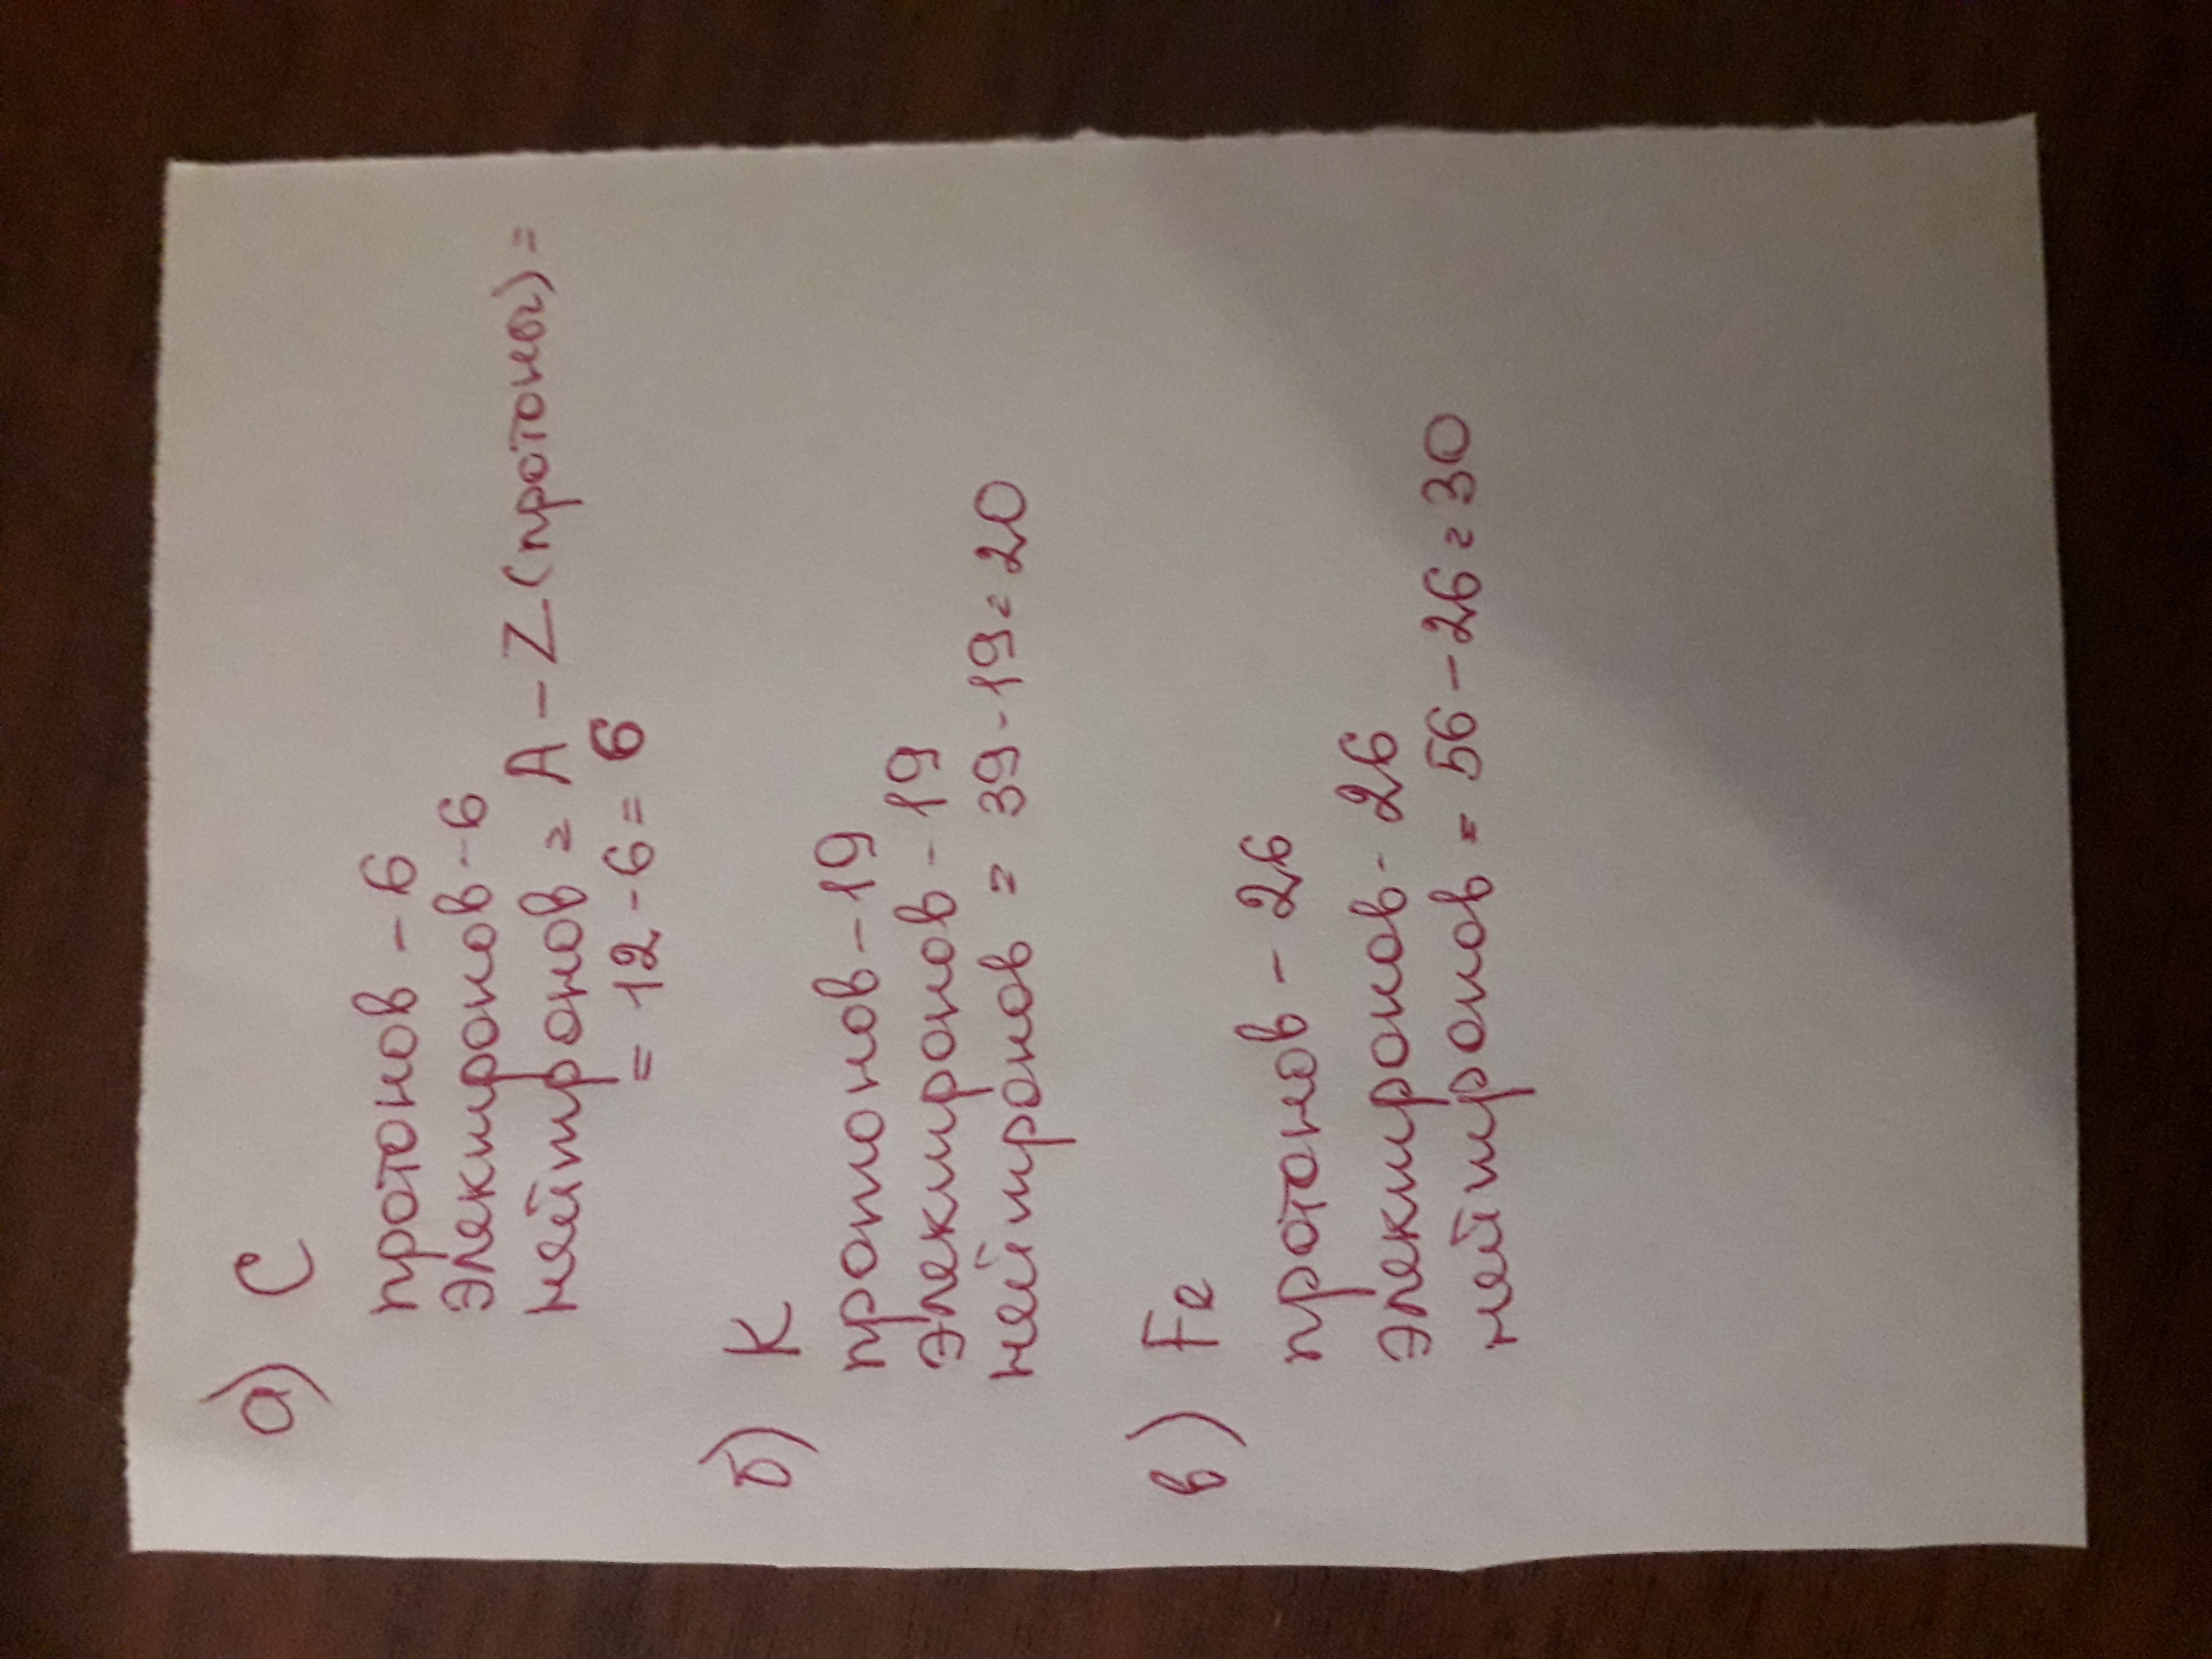 а) С
протонов - 6
электронов - 6
нейтронов = A - Z (протоны) =
= 12 - 6 = 6
б) К
протонов - 19
электронов - 19
нейтронов = 39 - 19 = 20
в) Fe
протонов - 26
электронов - 26
нейтронов = 56 - 26 = 30